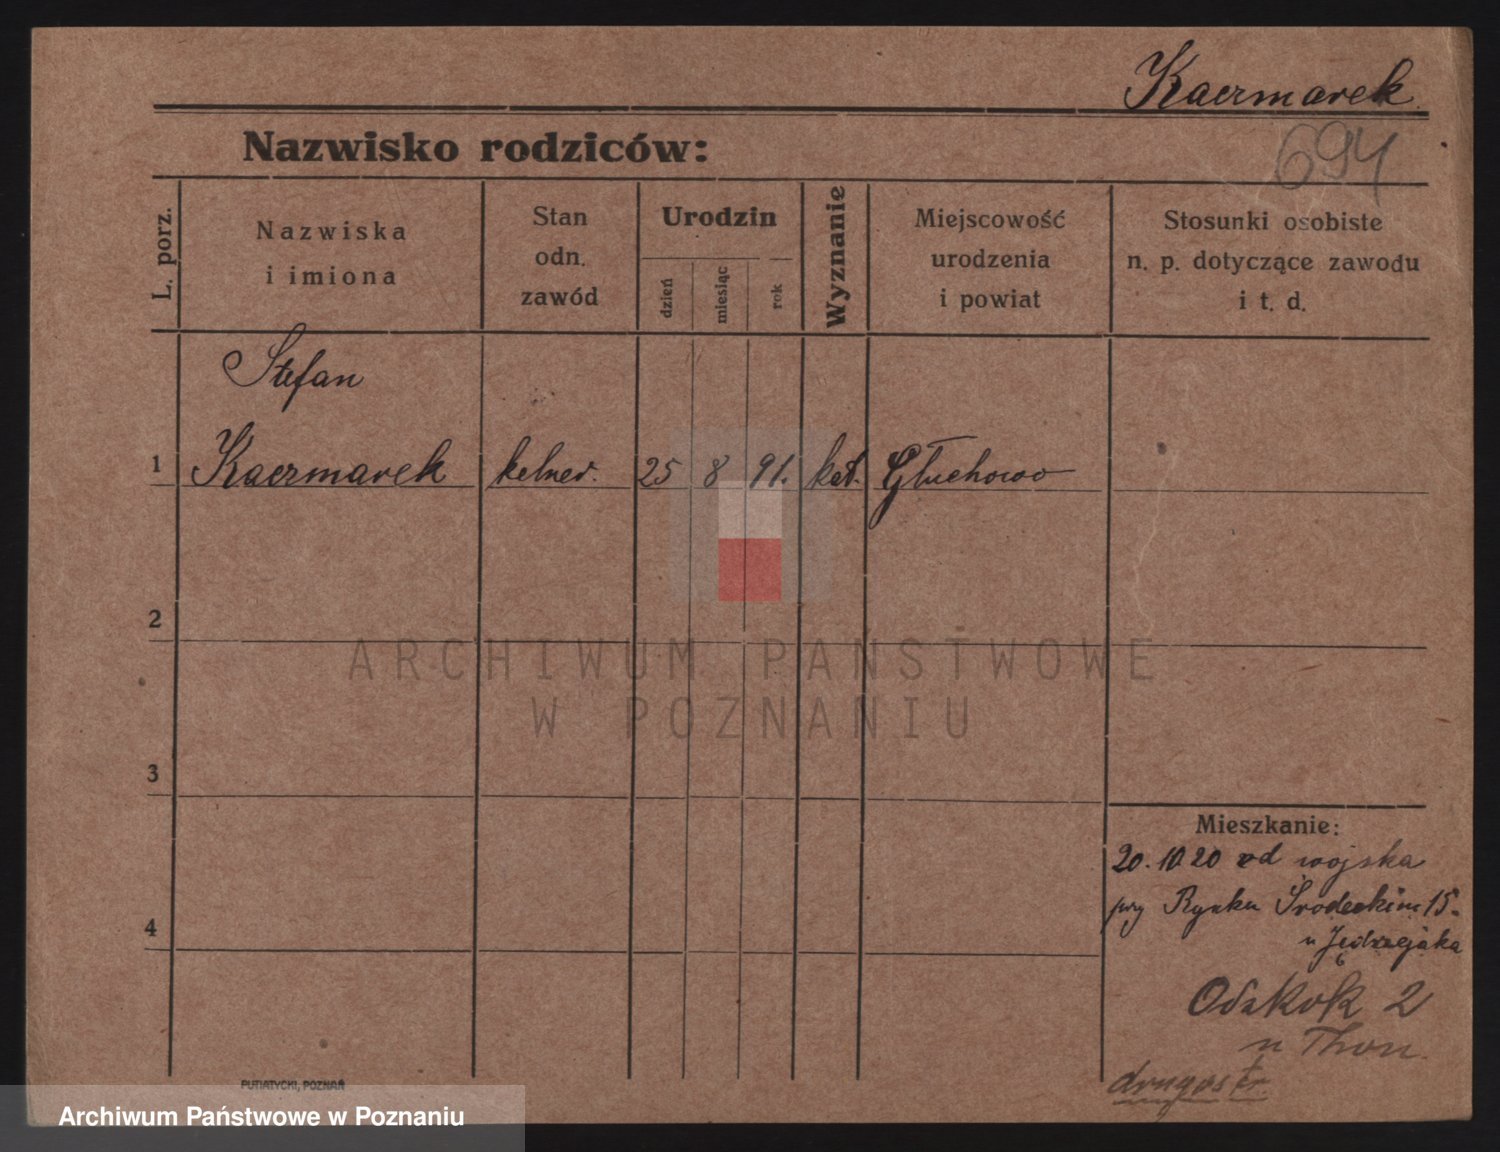 Kaczmarek
Nazwisko rodziców:
694
L. porz.
Nazwiska
i imiona
Stan
odn.
zawód
Urodzin
dzień
miesiąc
rok
Wyznanie
Miejscowość
urodzenia
i powiat
Stosunki osobiste
n. p. dotyczące zawodu
i t. d.
Stefan
1 Kaczmarek kelner. 25 8 91. kat. Głuchowo
2
ARCHIWUM PAŃSTWOWE
W POZNANIU
3
Mieszkanie:
20.10 20 od wojska
przy Rynku Śródeckim 15.
4
u Jędrzejaka
2
u Thon.
druga str.
PUTIATYCKI, POZNAŃ
Archiwum Państwowe w Poznaniu